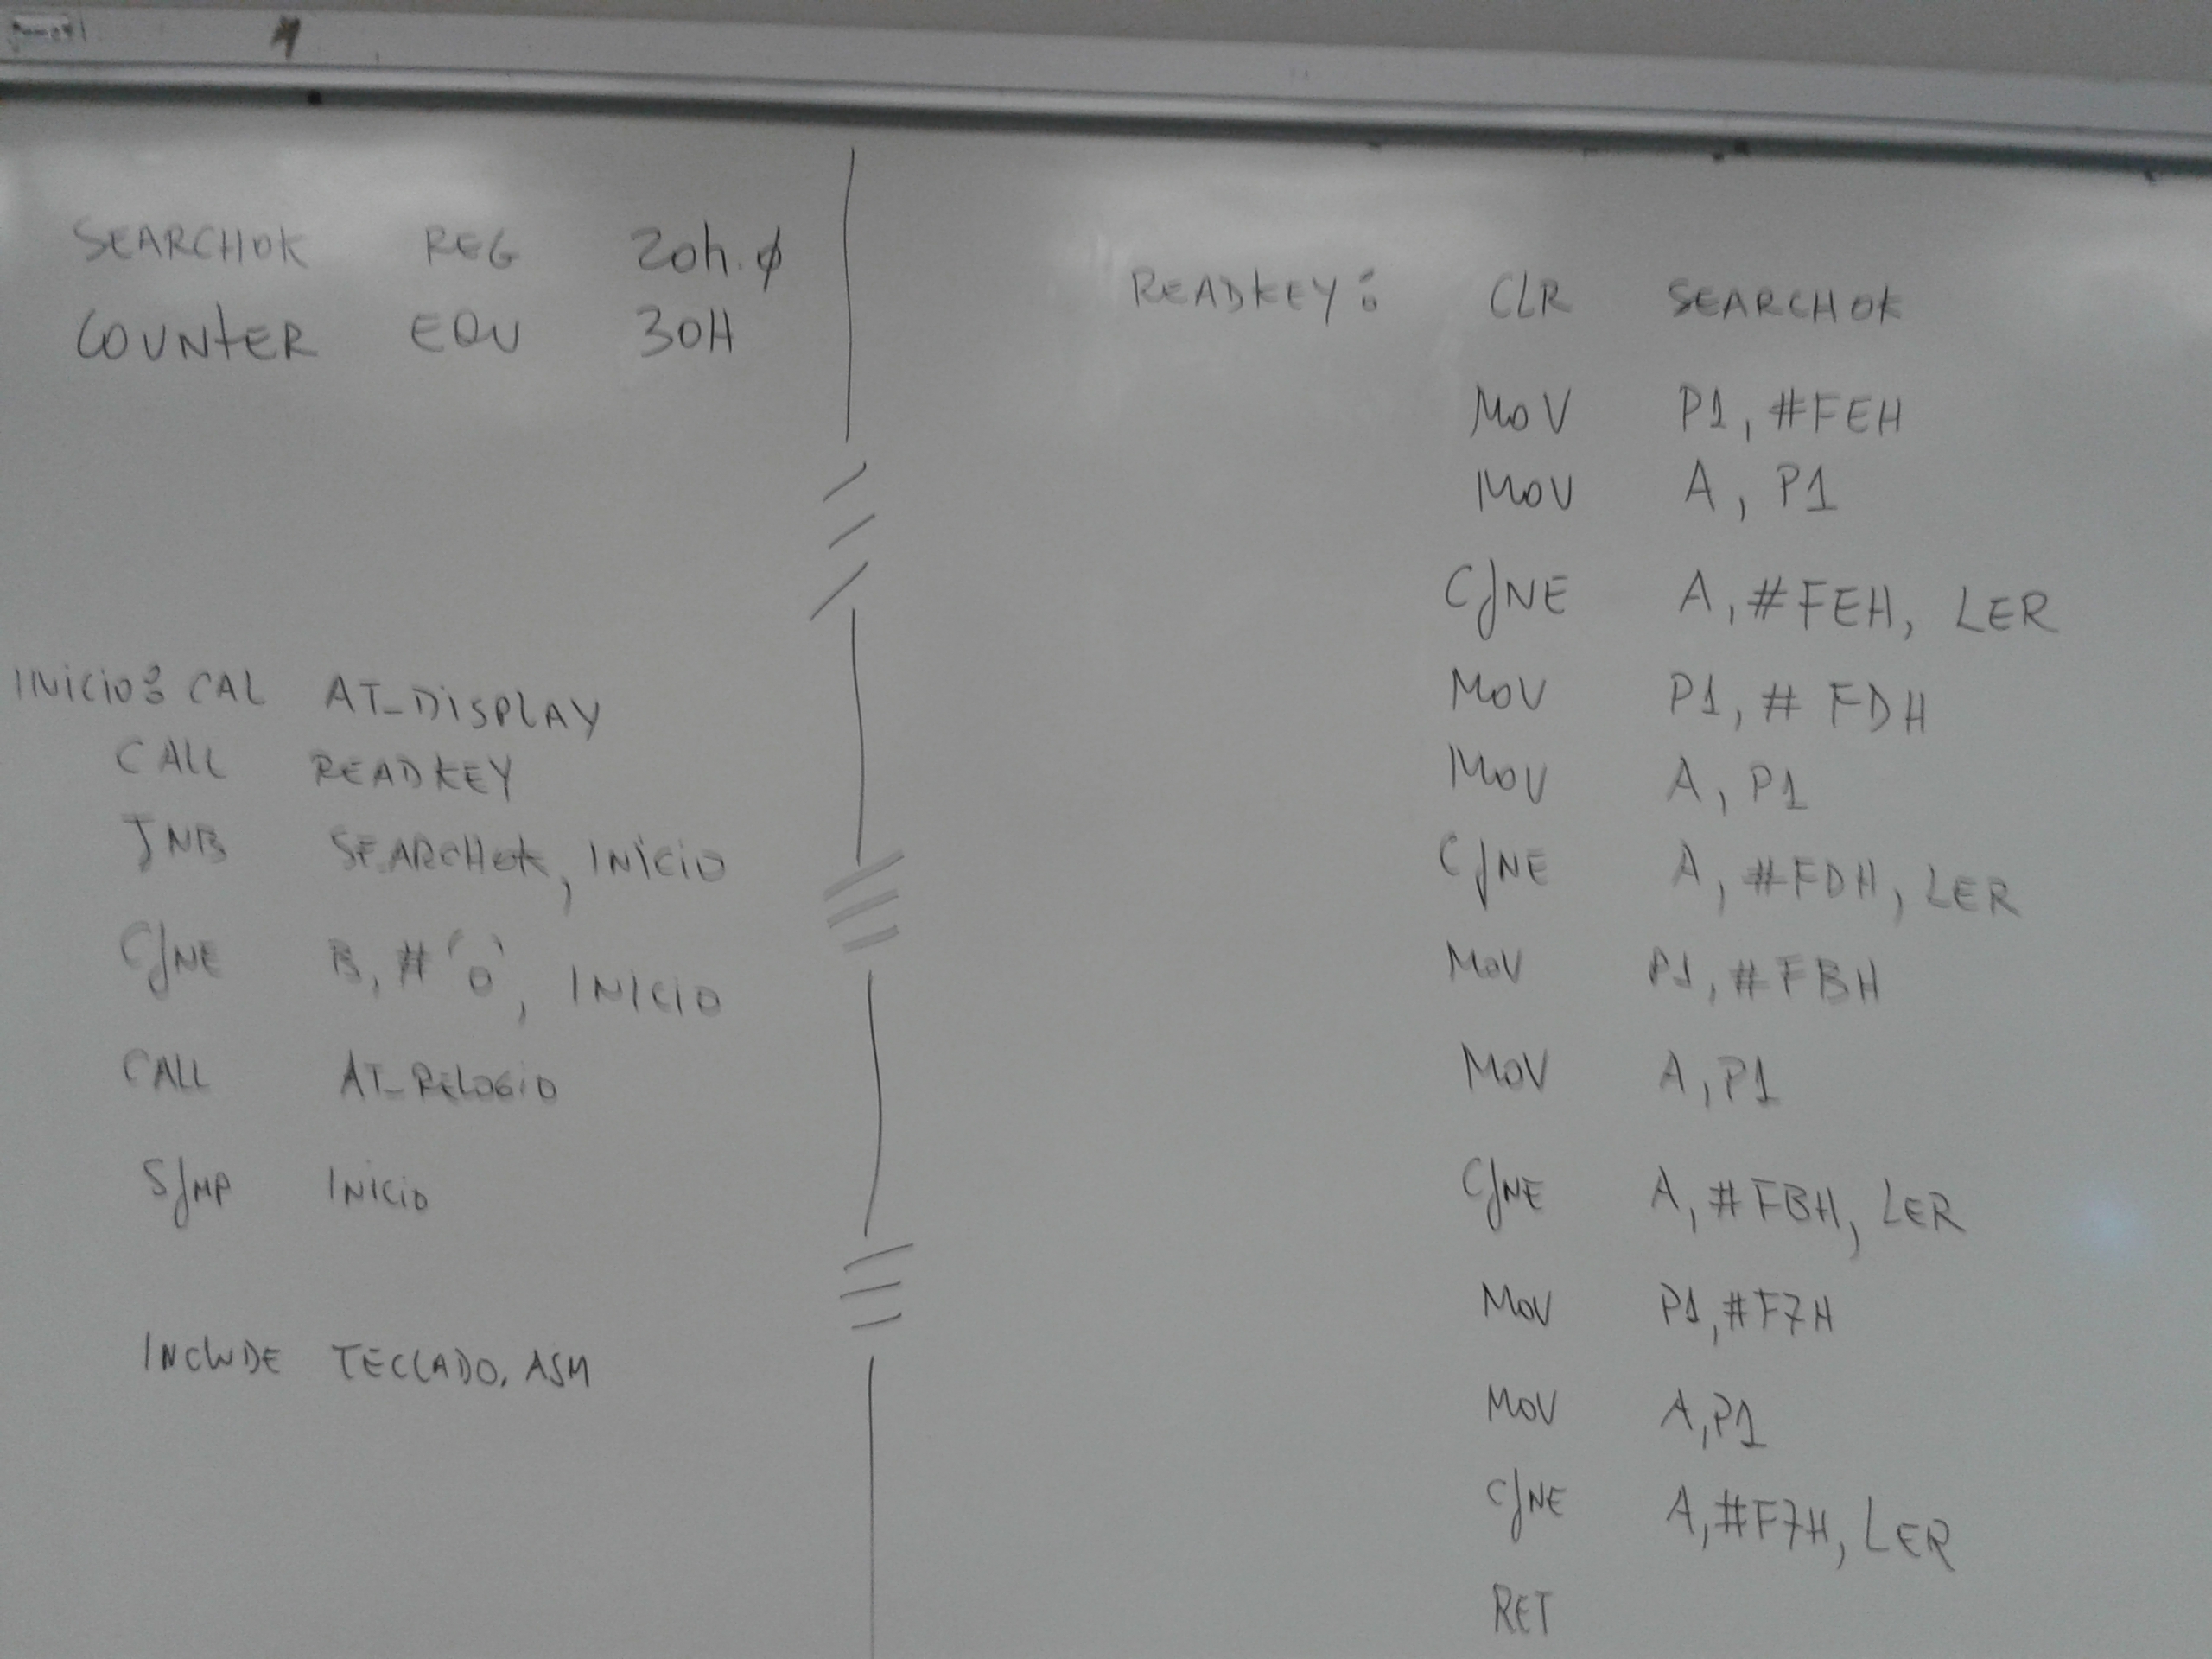 SEARCHOK REG 20h.φ
COUNTER EQU 30H
INICIO: CAL AT_DISPLAY
CALL READKEY
JNB SEARCHOK, INICIO
CJNE B, #'0', INICIO
CALL AT_RELOGIO
SJMP INICIO
INCLUDE TECLADO.ASM
READKEY: CLR SEARCHOK
MOV P1, #FEH
MOV A, P1
CJNE A, #FEH, LER
MOV P1, # FDH
MOV A, P1
CJNE A, #FDH, LER
MOV P1, #FBH
MOV A, P1
CJNE A, #FBH, LER
MOV P1, #F7H
MOV A, P1
CJNE A, #F7H, LER
RET